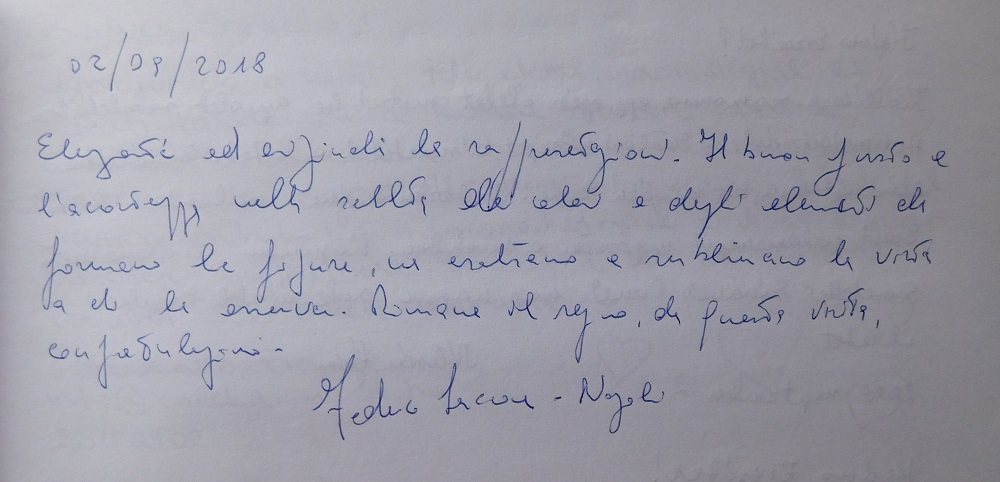 02/09/2018
Eleganti ed originali le rappresentazioni. Il buon gusto e
l'accortezza nella scelta dei colori e degli elementi che
formano le figure, ne esaltano e sublimano la vista
a chi le osserva. Rimane il segno, di questa visita,
congratulazioni.
Federico - Napoli